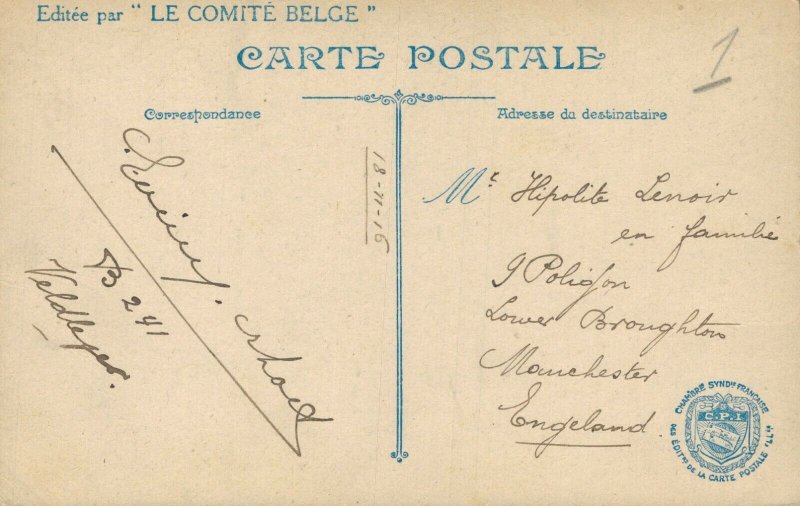 Editée par " LE COMITÉ BELGE "
CARTE POSTALE
1
Correspondance
Adresse du destinataire
18-11-16
B 241
Veldleger.
Mr Hipolite Lenoir
en familie
9 Poligon
Lower Broughton
Manchester
Engeland
CHAMBRE SYNDle FRANÇAISE
C.P.I
DES ÉDITrs DE LA CARTE POSTALE ILLée